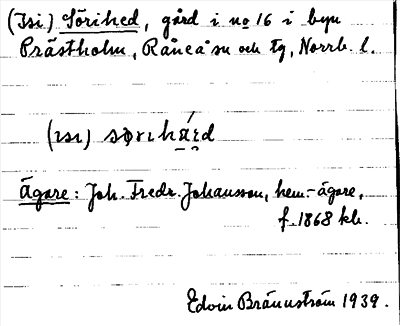 (Isi) Sörihed, gård i no 16 i byn
Prästholm, Råneå sn och tg, Norrb. l.
(ısı) sørıhä́rd
Ägare: Joh. Fredr. Johansson, hem.-ägare,
f. 1868 klr.
Edvin Brännström 1939.